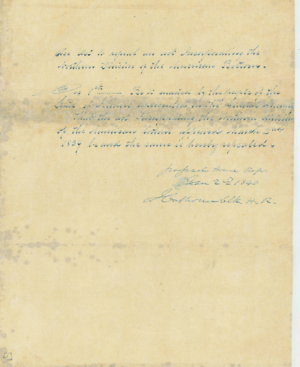 An Act to repeal an act Incorporating the
Northern Division of the American Bottom.
Sec 1st Be it enacted by the People of the
State of Illinois represented in the General Assembly
That the act Incorporating the Northern division
of the American bottom approved March 2nd
1839 be and the same is hereby repealed.
passed House Reps
1840
H. R.